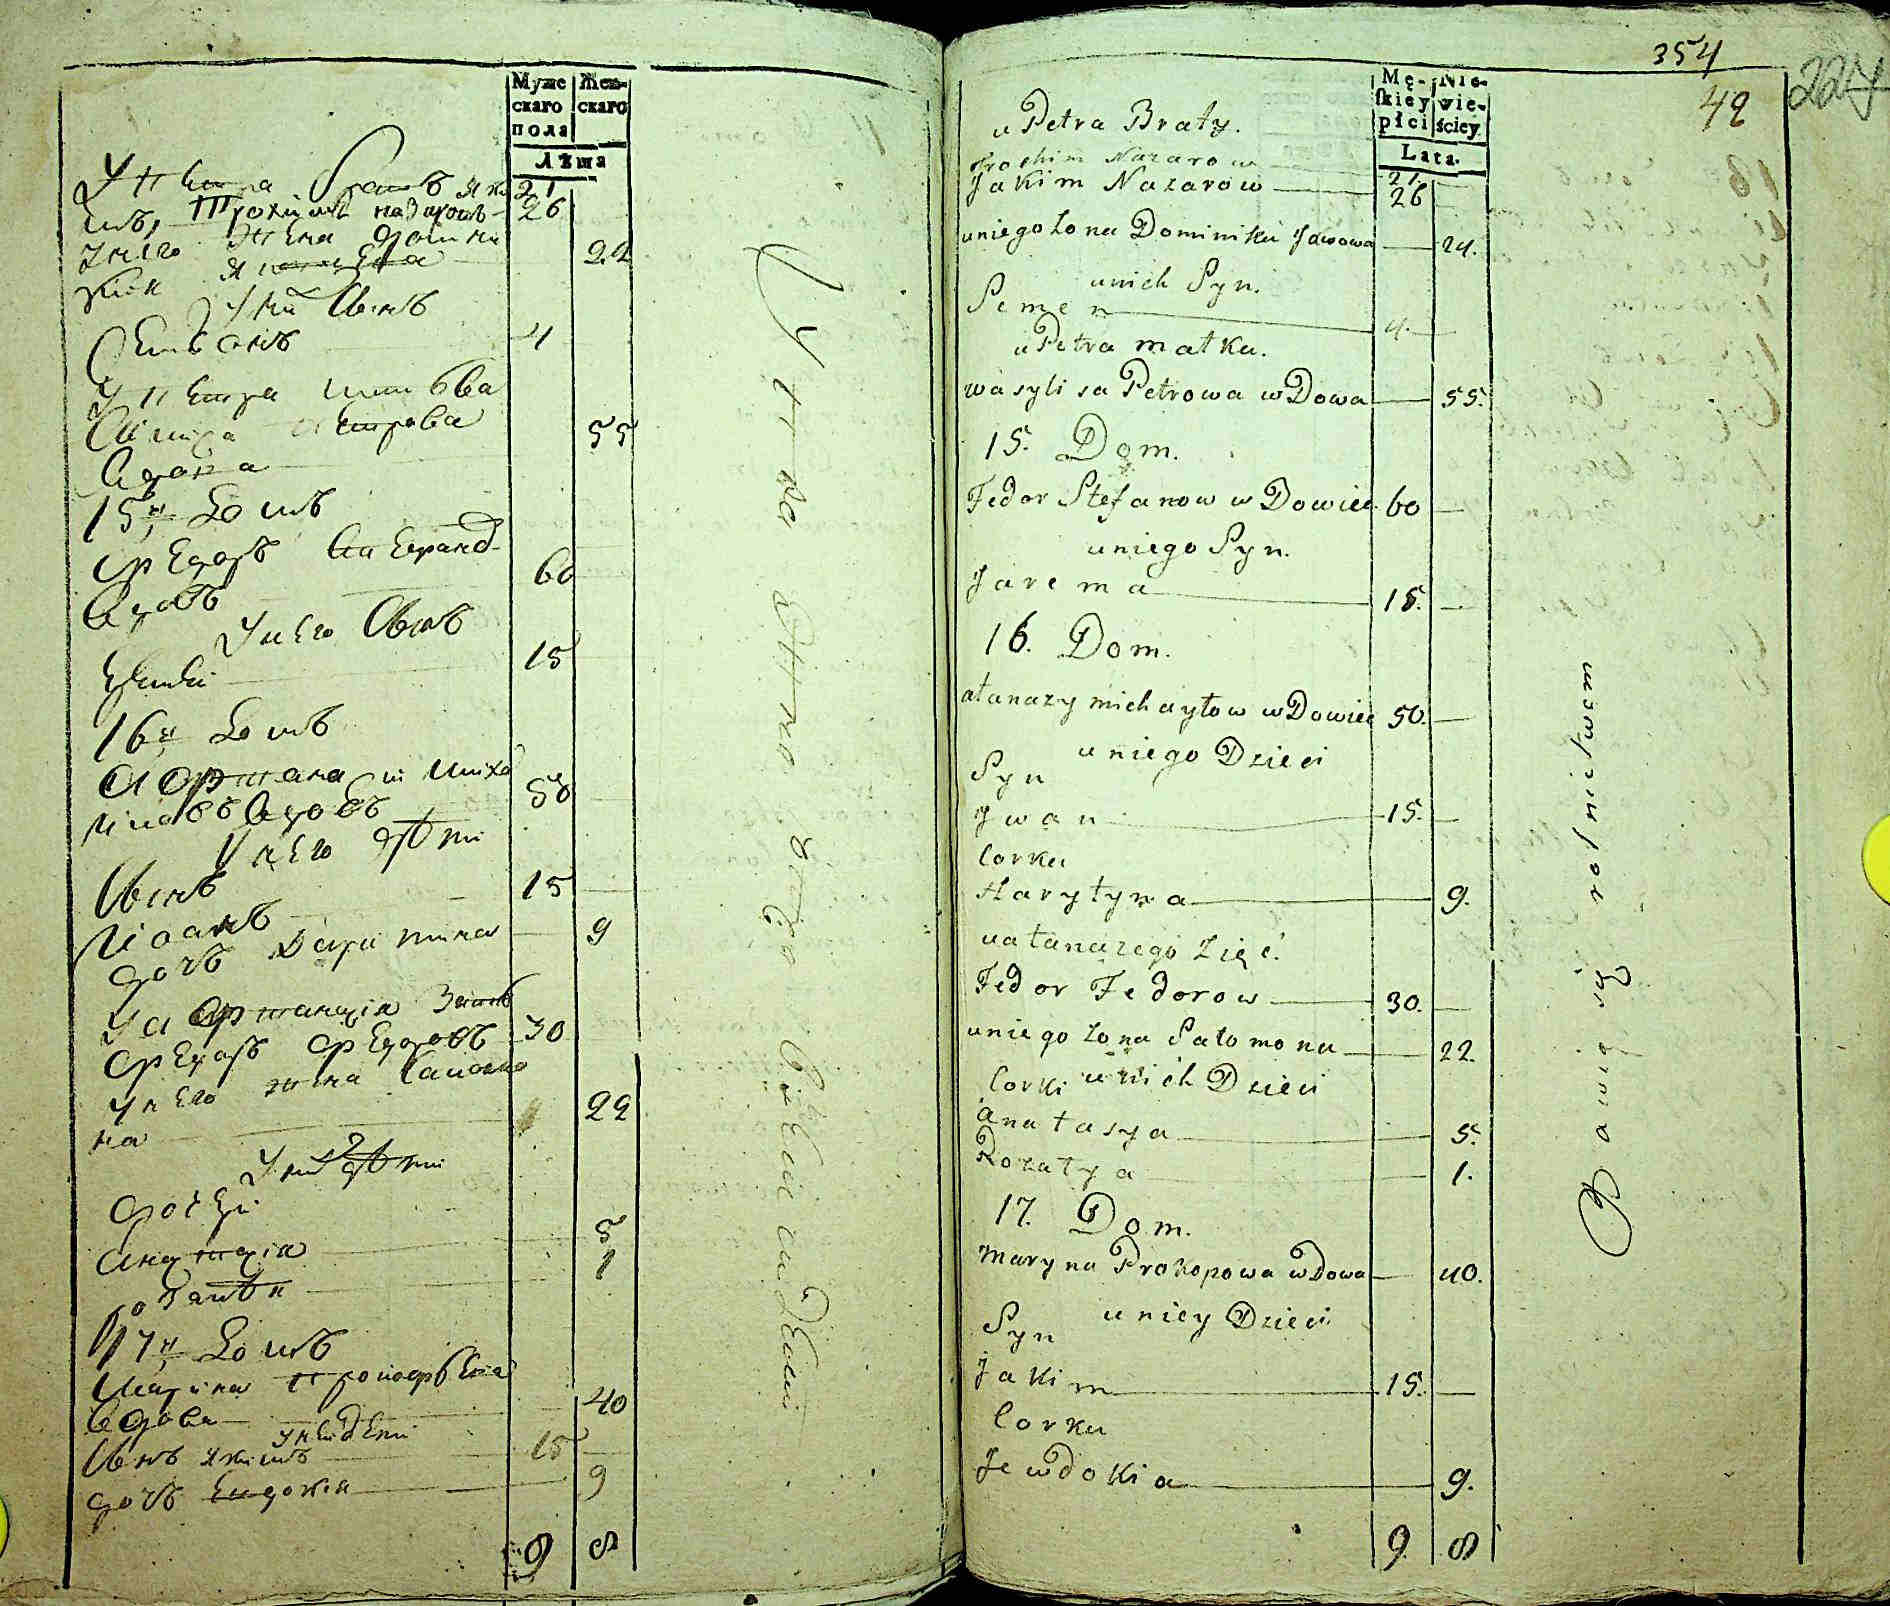 Муже
скаго
пола
Жен-
скаго
Лѣта
У Петра братъ Яки
мъ, Трохимъ назаровъ
21
26
у него жена Домини
кия Якимова
22
у ни Сынъ
Семіонъ
4
У Петра мать ва
силиса Петрова
вдова
55
15й Домъ
Федоръ Степанов
вдовъ
60
У него Сынъ
Ереміи
15
16й Домъ
Афтанаси Миха
иловъ вдовъ
50
У него дѣти
Сынъ
15
Иоанъ
дочь Харитина
9
У Афтанасія Зять
Федоръ Федоровъ
30
у него жена Саломо
на
22
У ни дѣти
дочери
Анастасія
5
1
17й Домъ
Марина Прокофьева
вдова
40
у ней дети
Сынъ Якимъ
15
дочь Евдокия
9
9 8
354
42
227
Mę-
skiey
płci
Nie-
wie-
ściey
Lata.
u Petra Braty.
Trochim Nazarow
21.
Jakim Nazarow
26
uniego Żona Dominika Jawowa
24.
unich Syn.
Semen
4.
u Petra matka.
wasylisa Petrowa wDowa
55.
15. Dom.
Fedor Stefanow wDowiec
60
uniego Syn.
Jarema
15.
16. Dom.
atanazy michayłow wDowiec
50.
uniego Dzieci
Syn
Jwan
15.
Corka
Harytyna
9.
uatanazego Zięć.
Fedor Fedorow
30.
uniego Żona Sałomona
22.
unich Dzieci
Corki
anatasya
5.
Rozalya
1.
17. Dom.
Maryna Prokopowa wDowa
40.
uniey Dzieci
Syn
Jakim
15.
Corka
Jewdokia
9.
9. 8
Bawią się rolnictwem